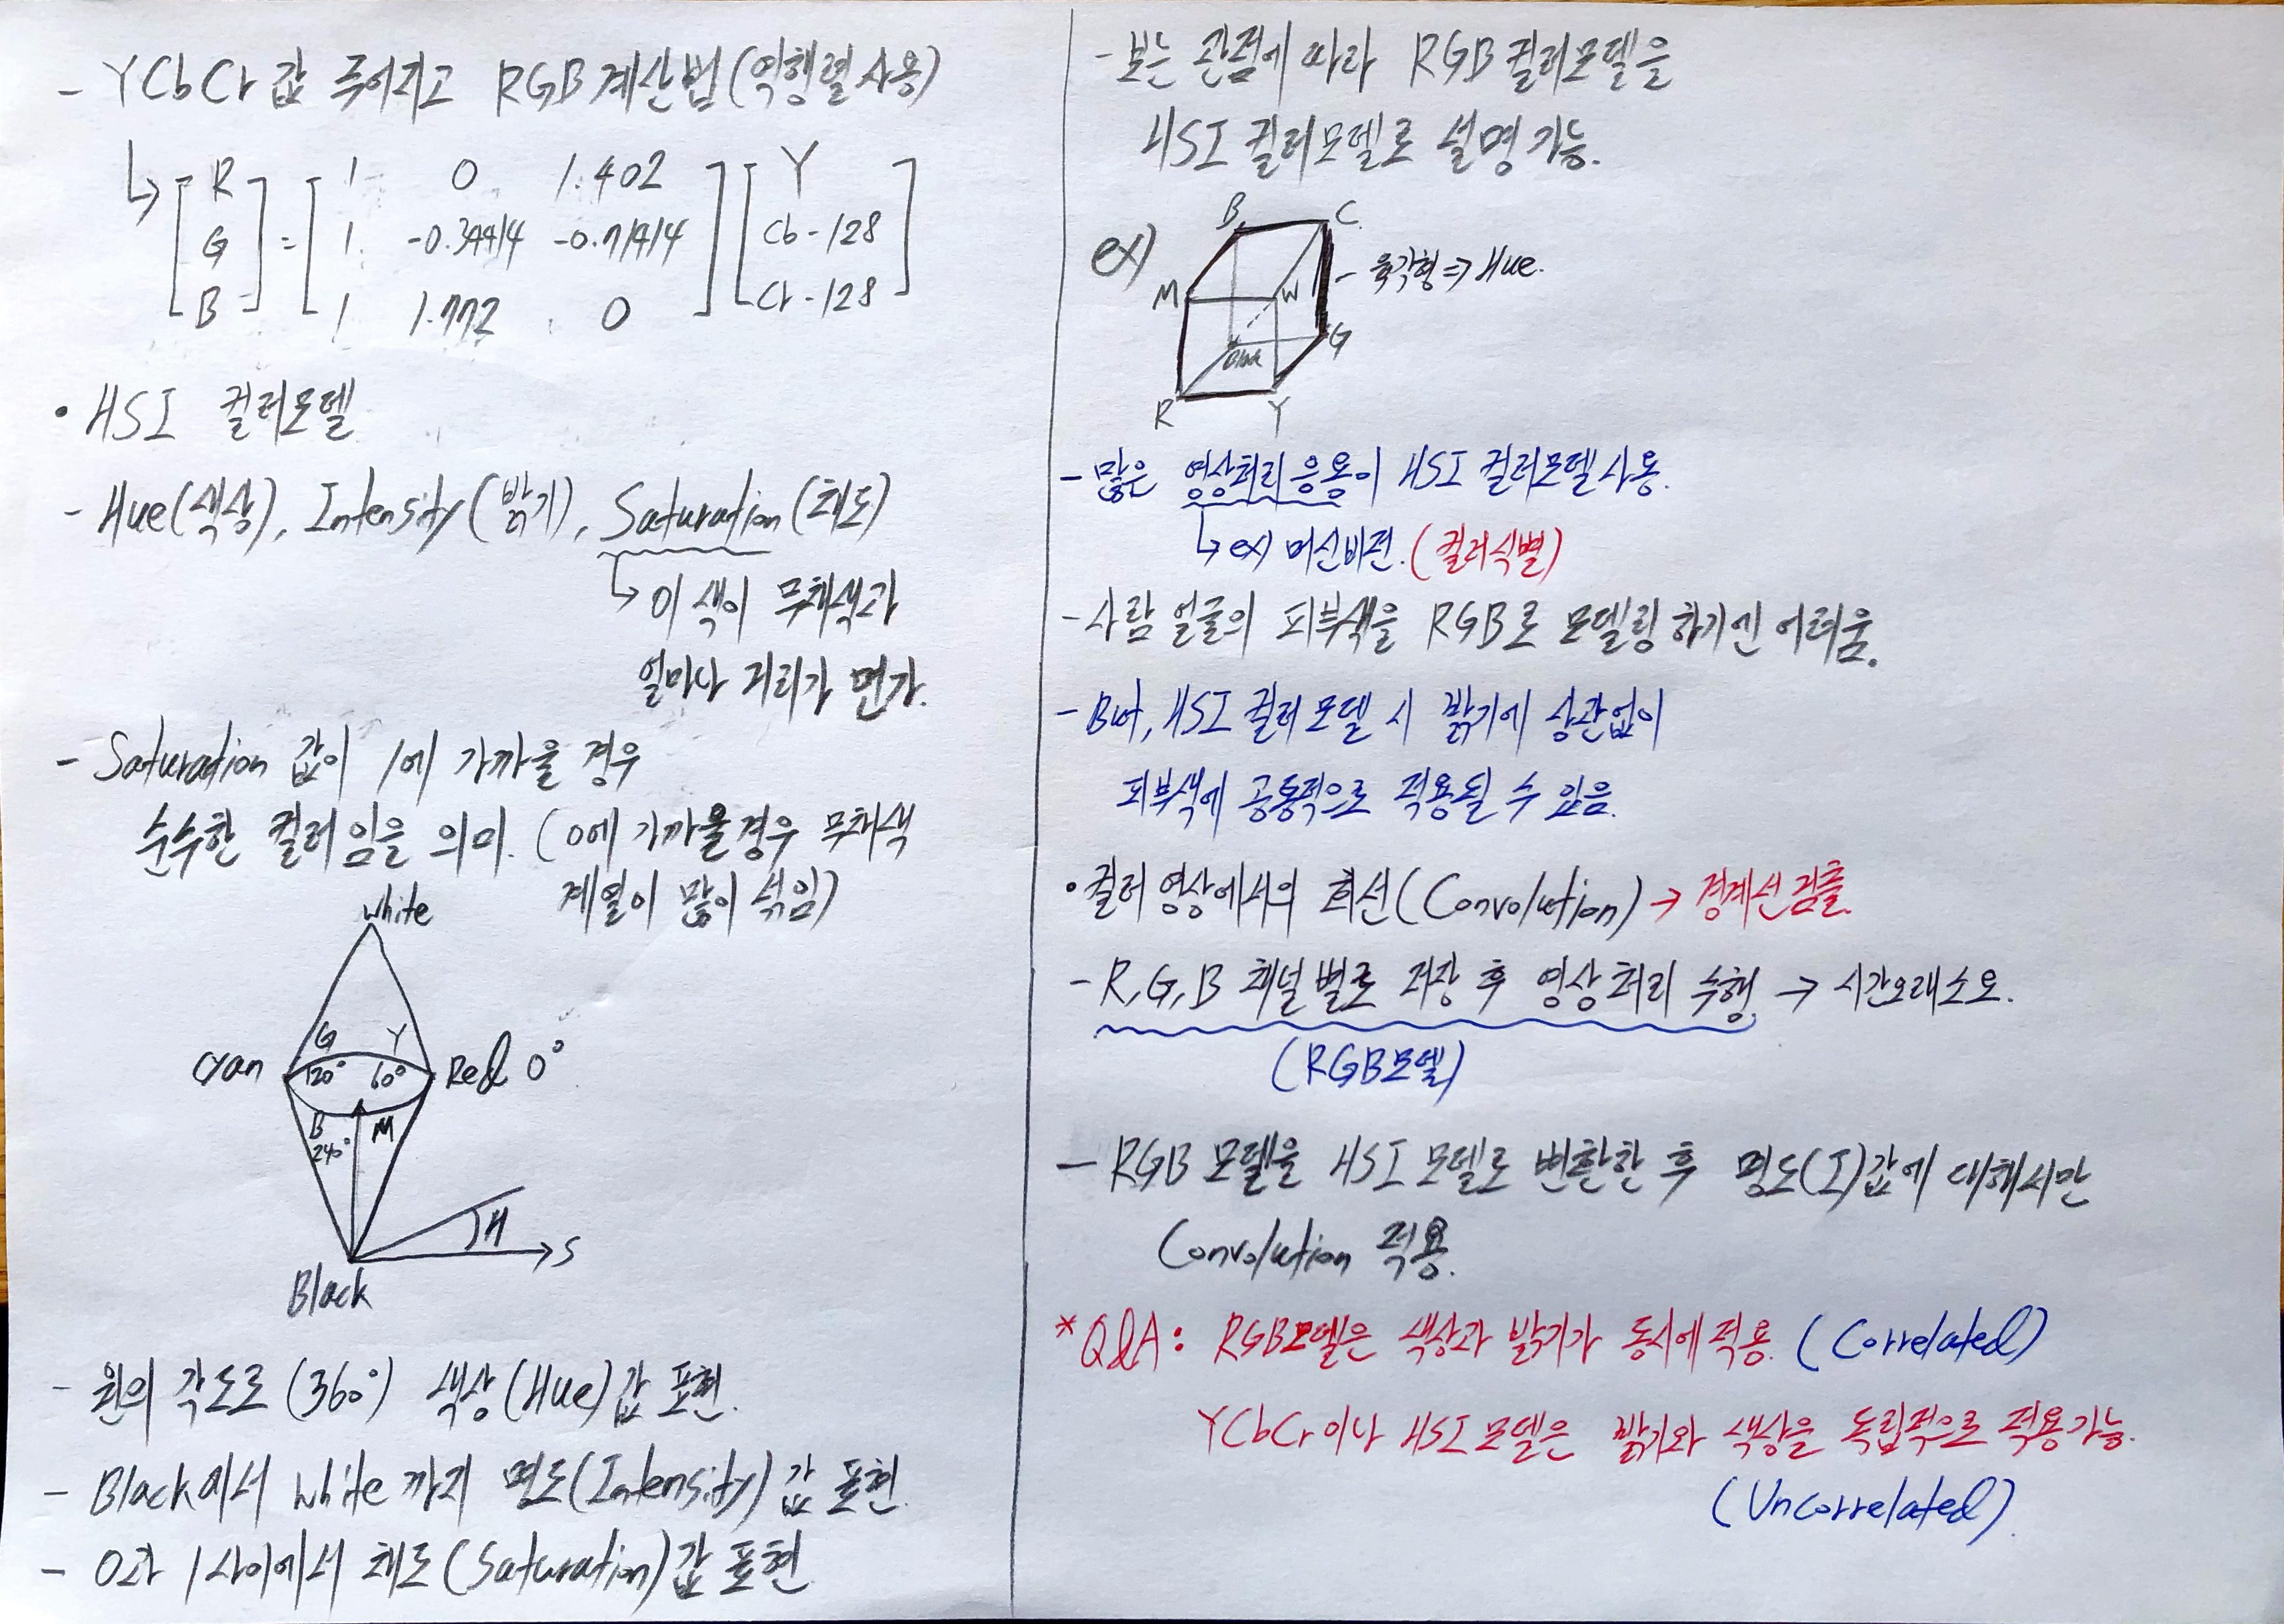 - YCbCr 값 주어지고 RGB 계산법 (역행렬 사용)
↳ [R G B] = [1 0 1.402
1 -0.34414 -0.71414
1 1.772 0] [Y
Cb-128
Cr-128]
• HSI 컬러모델
- Hue(색상), Intensity(밝기), Saturation(채도)
↳ 이 색이 무채색과
얼마나 거리가 먼가.
- Saturation 값이 1에 가까울 경우
순수한 컬러임을 의미. (0에 가까울경우 무채색
계열이 많이 섞임)
white
G Y
Cyan 120° 60° Red 0°
B M
240°
H
S
Black
- 원의 각도로 (360°) 색상(Hue)값 표현.
- Black에서 white까지 명도(Intensity)값 표현.
- 0과 1사이에서 채도(Saturation)값 표현
- 보는 관점에 따라 RGB컬러모델을
HSI 컬러모델로 설명 가능.
ex)
B C
M W - 육각형 ⇒ Hue.
Black G
R Y
- 많은 영상처리 응용이 HSI 컬러모델 사용.
↳ ex) 머신비전. (컬러식별)
- 사람 얼굴의 피부색을 RGB로 모델링 하기엔 어려움.
- But, HSI 컬러 모델 시 밝기에 상관없이
피부색에 공통적으로 적용될 수 있음.
• 컬러 영상에서의 회선(Convolution) → 경계선 검출.
- R, G, B 채널 별로 저장 후 영상 처리 수행. → 시간오래소요.
(RGB모델)
- RGB 모델을 HSI 모델로 변환한 후 명도(I)값에 대해서만
Convolution 적용.
* Q&A : RGB모델은 색상과 밝기가 동시에 적용. (Correlated)
YCbCr이나 HSI 모델은 밝기와 색상을 독립적으로 적용가능.
(Uncorrelated).